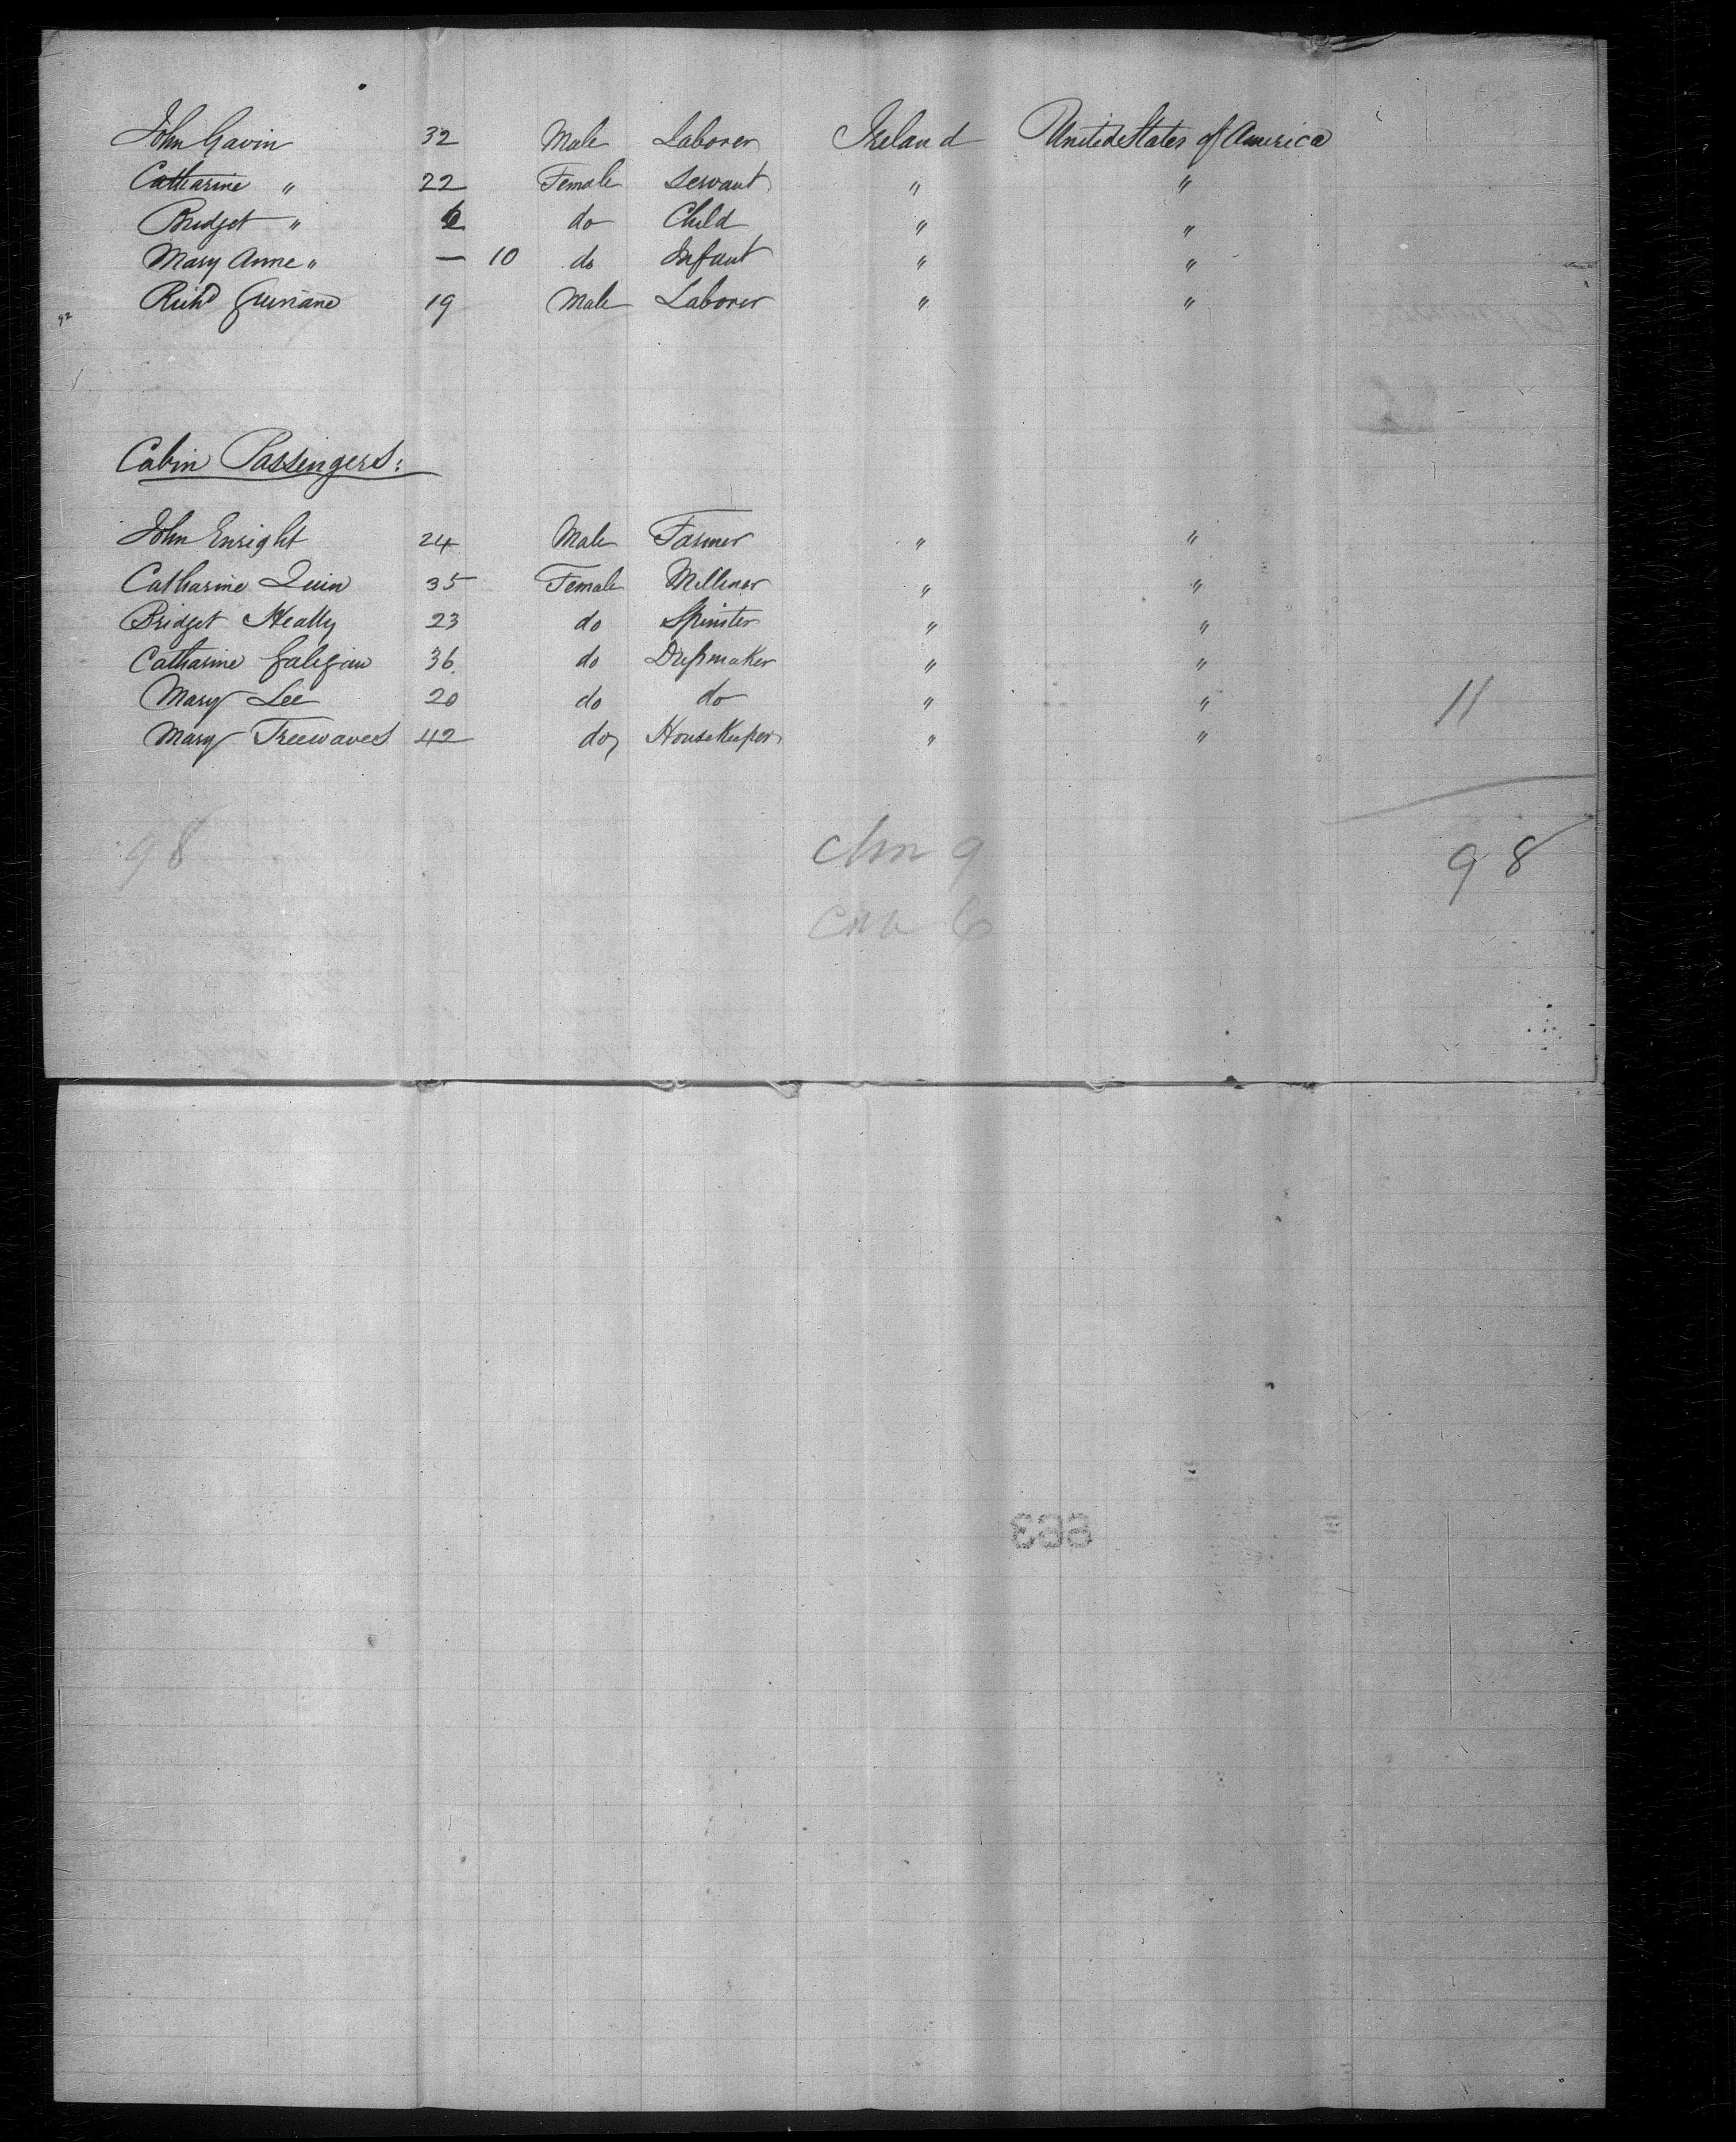 John Gavin 32 Male Laborer Ireland United States of America
Catharine " 22 Female Servant " "
Bridget " do Child " "
Mary Anne " — 10 do Infant " "
Richd Guinane 19 Male Laborer " "
92
Cabin Passengers:
John Enright 24 Male Farmer " "
Catharine Quin 35 Female Milliner " "
Bridget Healy 23 do Spinster " "
Catharine Galegan 36 do Dressmaker " "
Mary Lee 20 do do " " 11
Mary Treewaves 42 do HouseKeeper " "
98 9 98
6